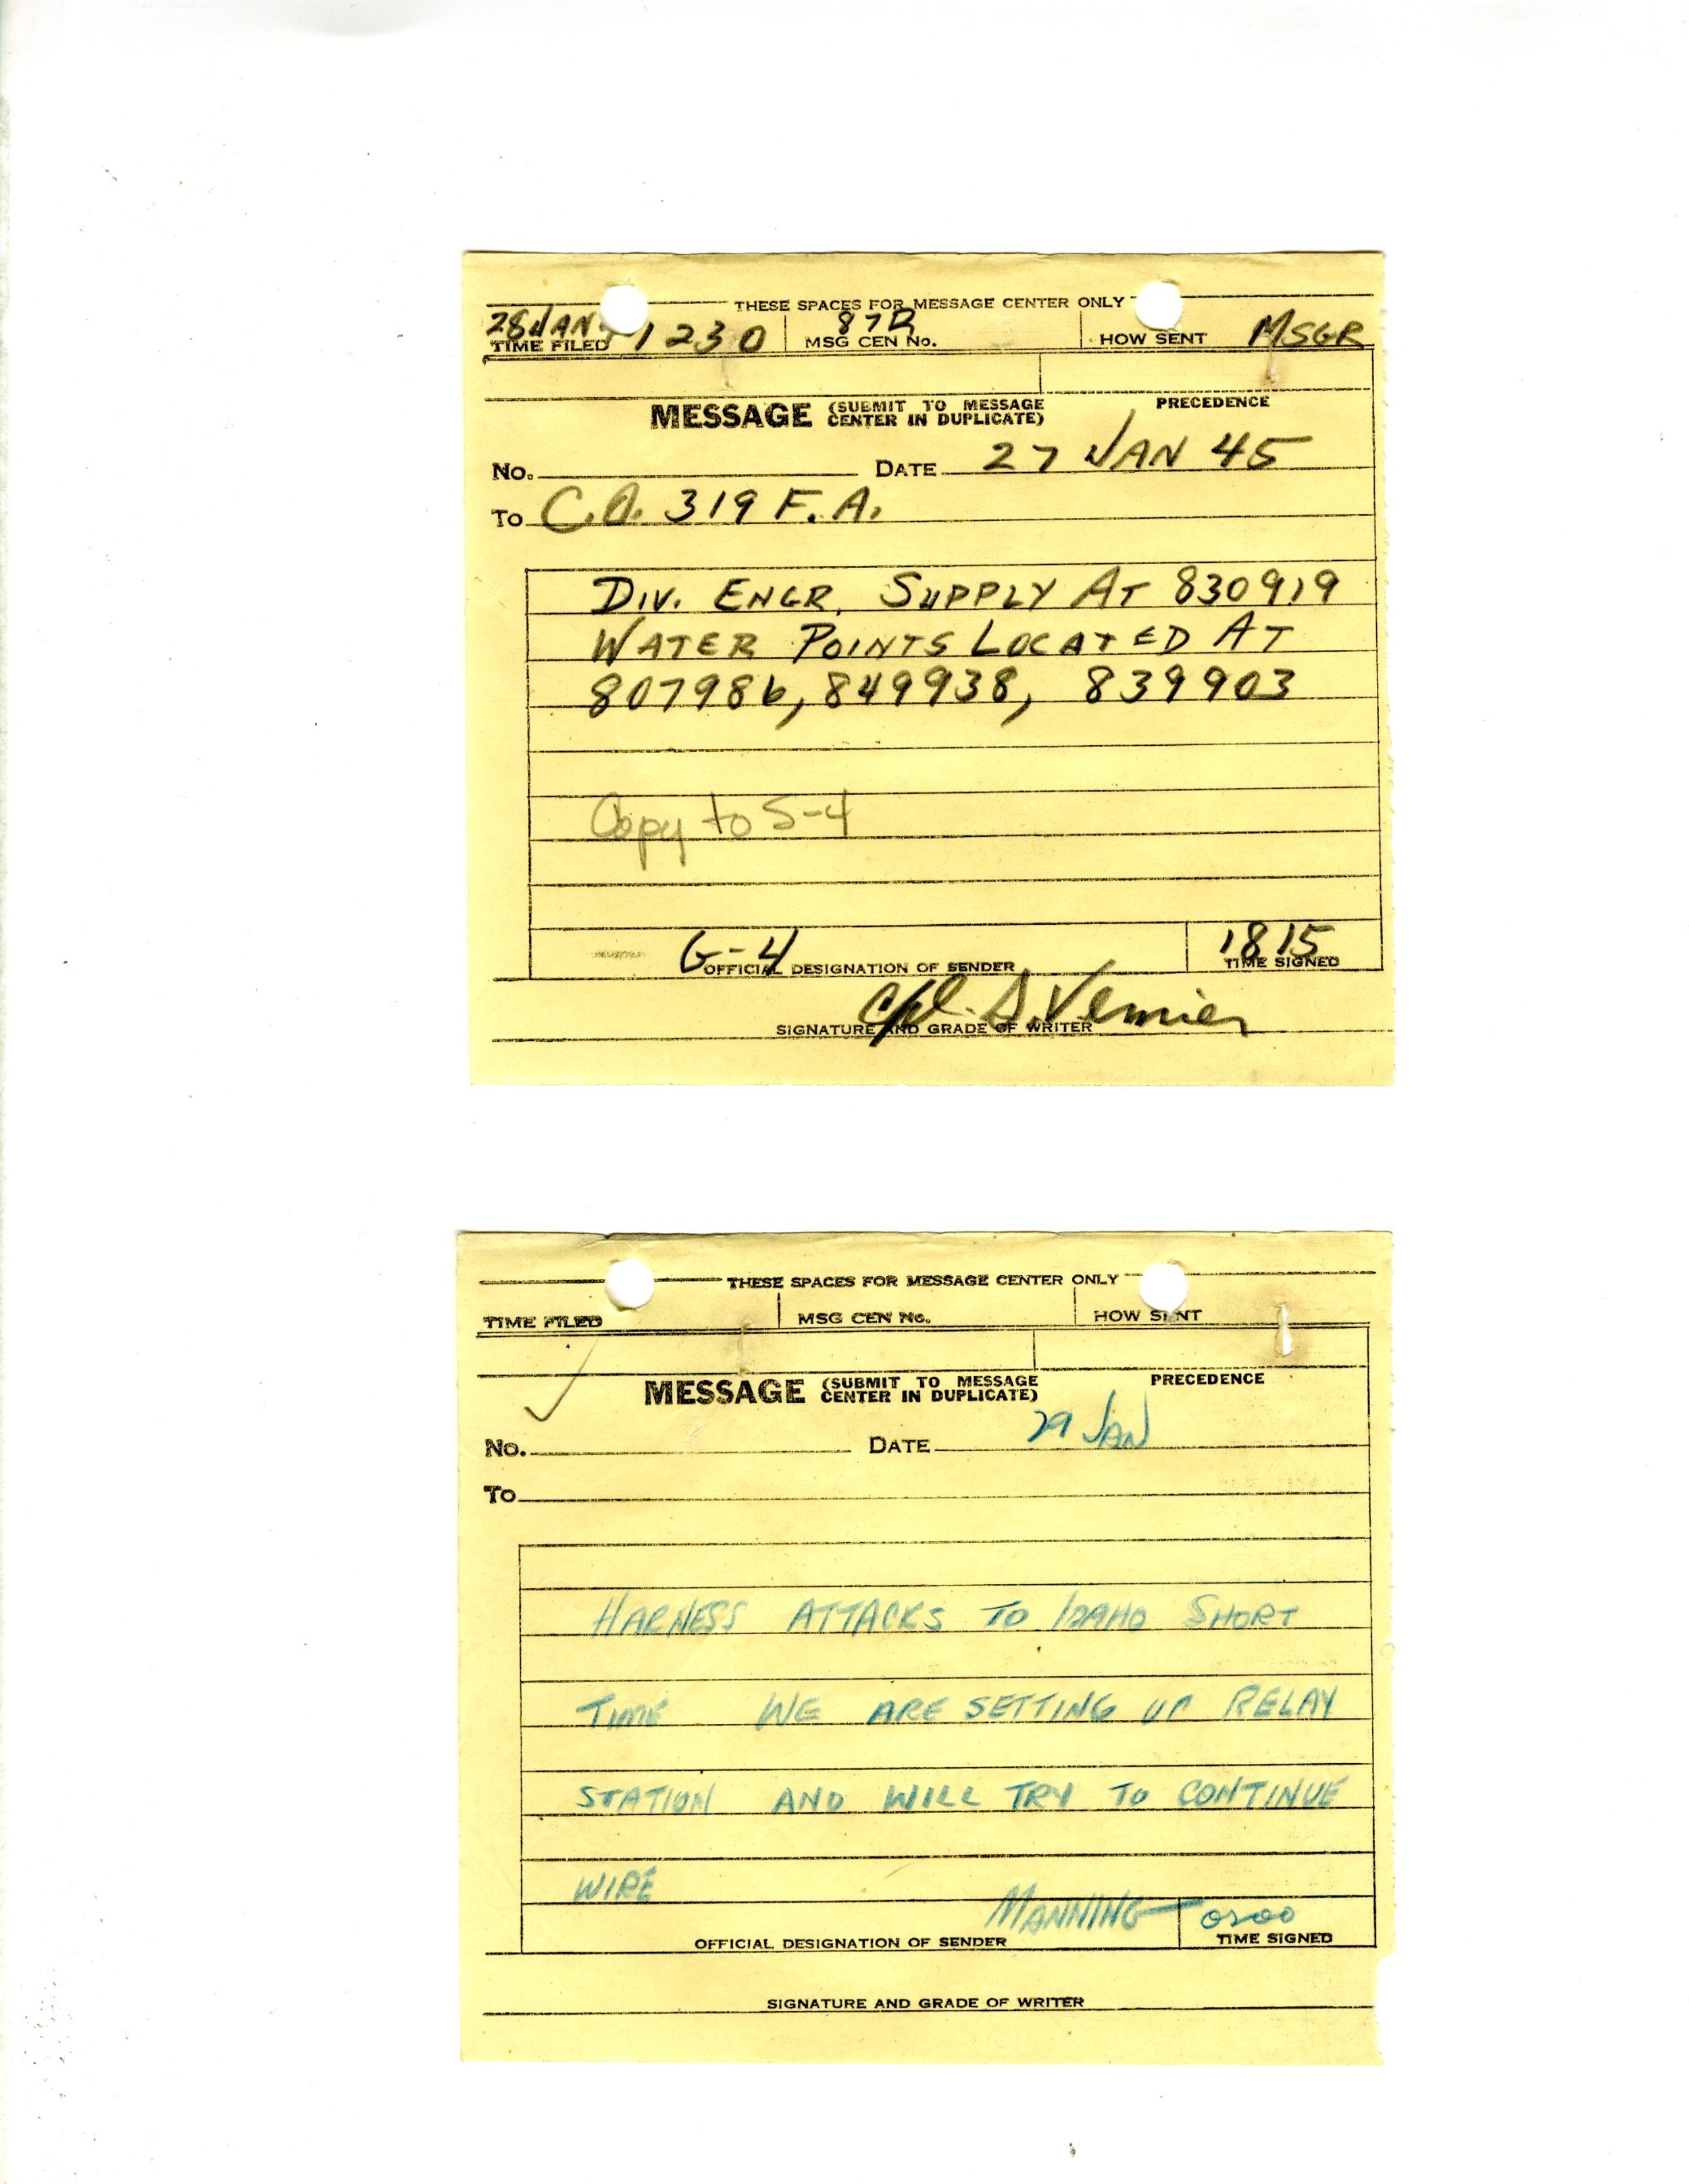 THESE SPACES FOR MESSAGE CENTER ONLY
28 JAN 1230 87D MSGR
TIME FILED MSG CEN No. HOW SENT
PRECEDENCE
MESSAGE (SUBMIT TO MESSAGE CENTER IN DUPLICATE)
No. DATE 27 JAN 45
To C.O. 319 F.A.
DIV. ENGR. SUPPLY AT 830919
WATER POINTS LOCATED AT
807986, 849938, 839903
Copy to S-4
G-4 1815
OFFICIAL DESIGNATION OF SENDER TIME SIGNED
Cpl. S. Vernier
SIGNATURE AND GRADE OF WRITER
THESE SPACES FOR MESSAGE CENTER ONLY
TIME FILED MSG CEN No. HOW SENT
PRECEDENCE
MESSAGE (SUBMIT TO MESSAGE CENTER IN DUPLICATE)
No. DATE 29 JAN
To
HARNESS ATTACKS TO IDAHO SHORT
TIME WE ARE SETTING UP RELAY
STATION AND WILL TRY TO CONTINUE
WIRE
MANNING
OFFICIAL DESIGNATION OF SENDER TIME SIGNED
SIGNATURE AND GRADE OF WRITER